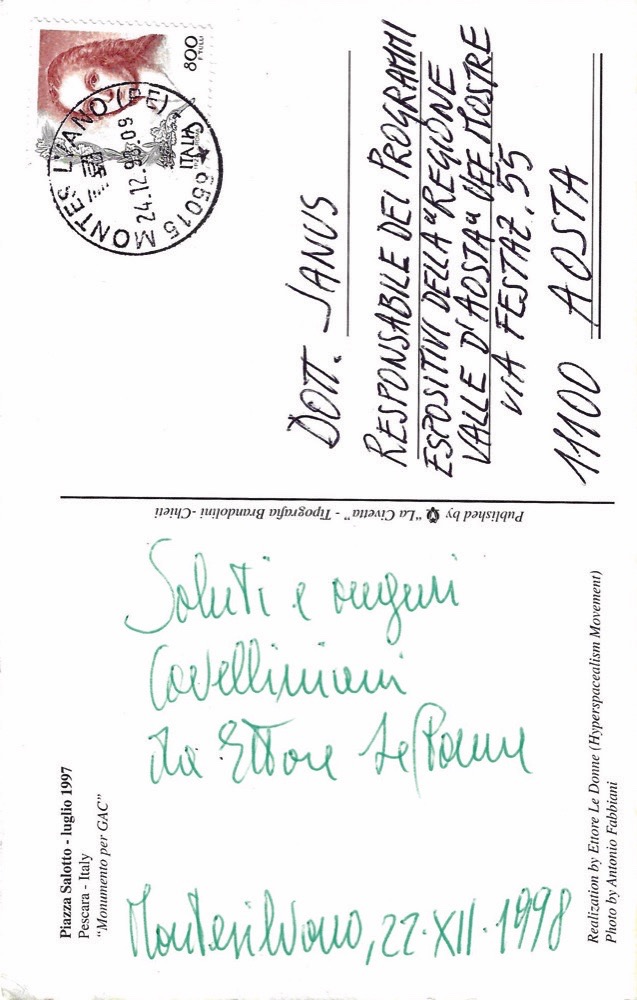 Piazza Salotto - luglio 1997
Pescara - Italy
"Monumento per GAC"
Saluti e auguri
Cavelliniani
da Ettore Le Donne
Montesilvano, 22·XII·1998
Realization by Ettore Le Donne (Hyperspacealism Movement)
Photo by Antonio Fabbiani
Published by "La Civetta" - Tipografia Brandolini - Chieti
800
ITALIA
65015 MONTESILVANO (PE)
24.12.98 09
DOTT. JANUS
RESPONSABILE DEI PROGRAMMI
ESPOSITIVI DELLA "REGIONE
VALLE D'AOSTA" UFF. MOSTRE
VIA FESTAZ, 55
11100 AOSTA